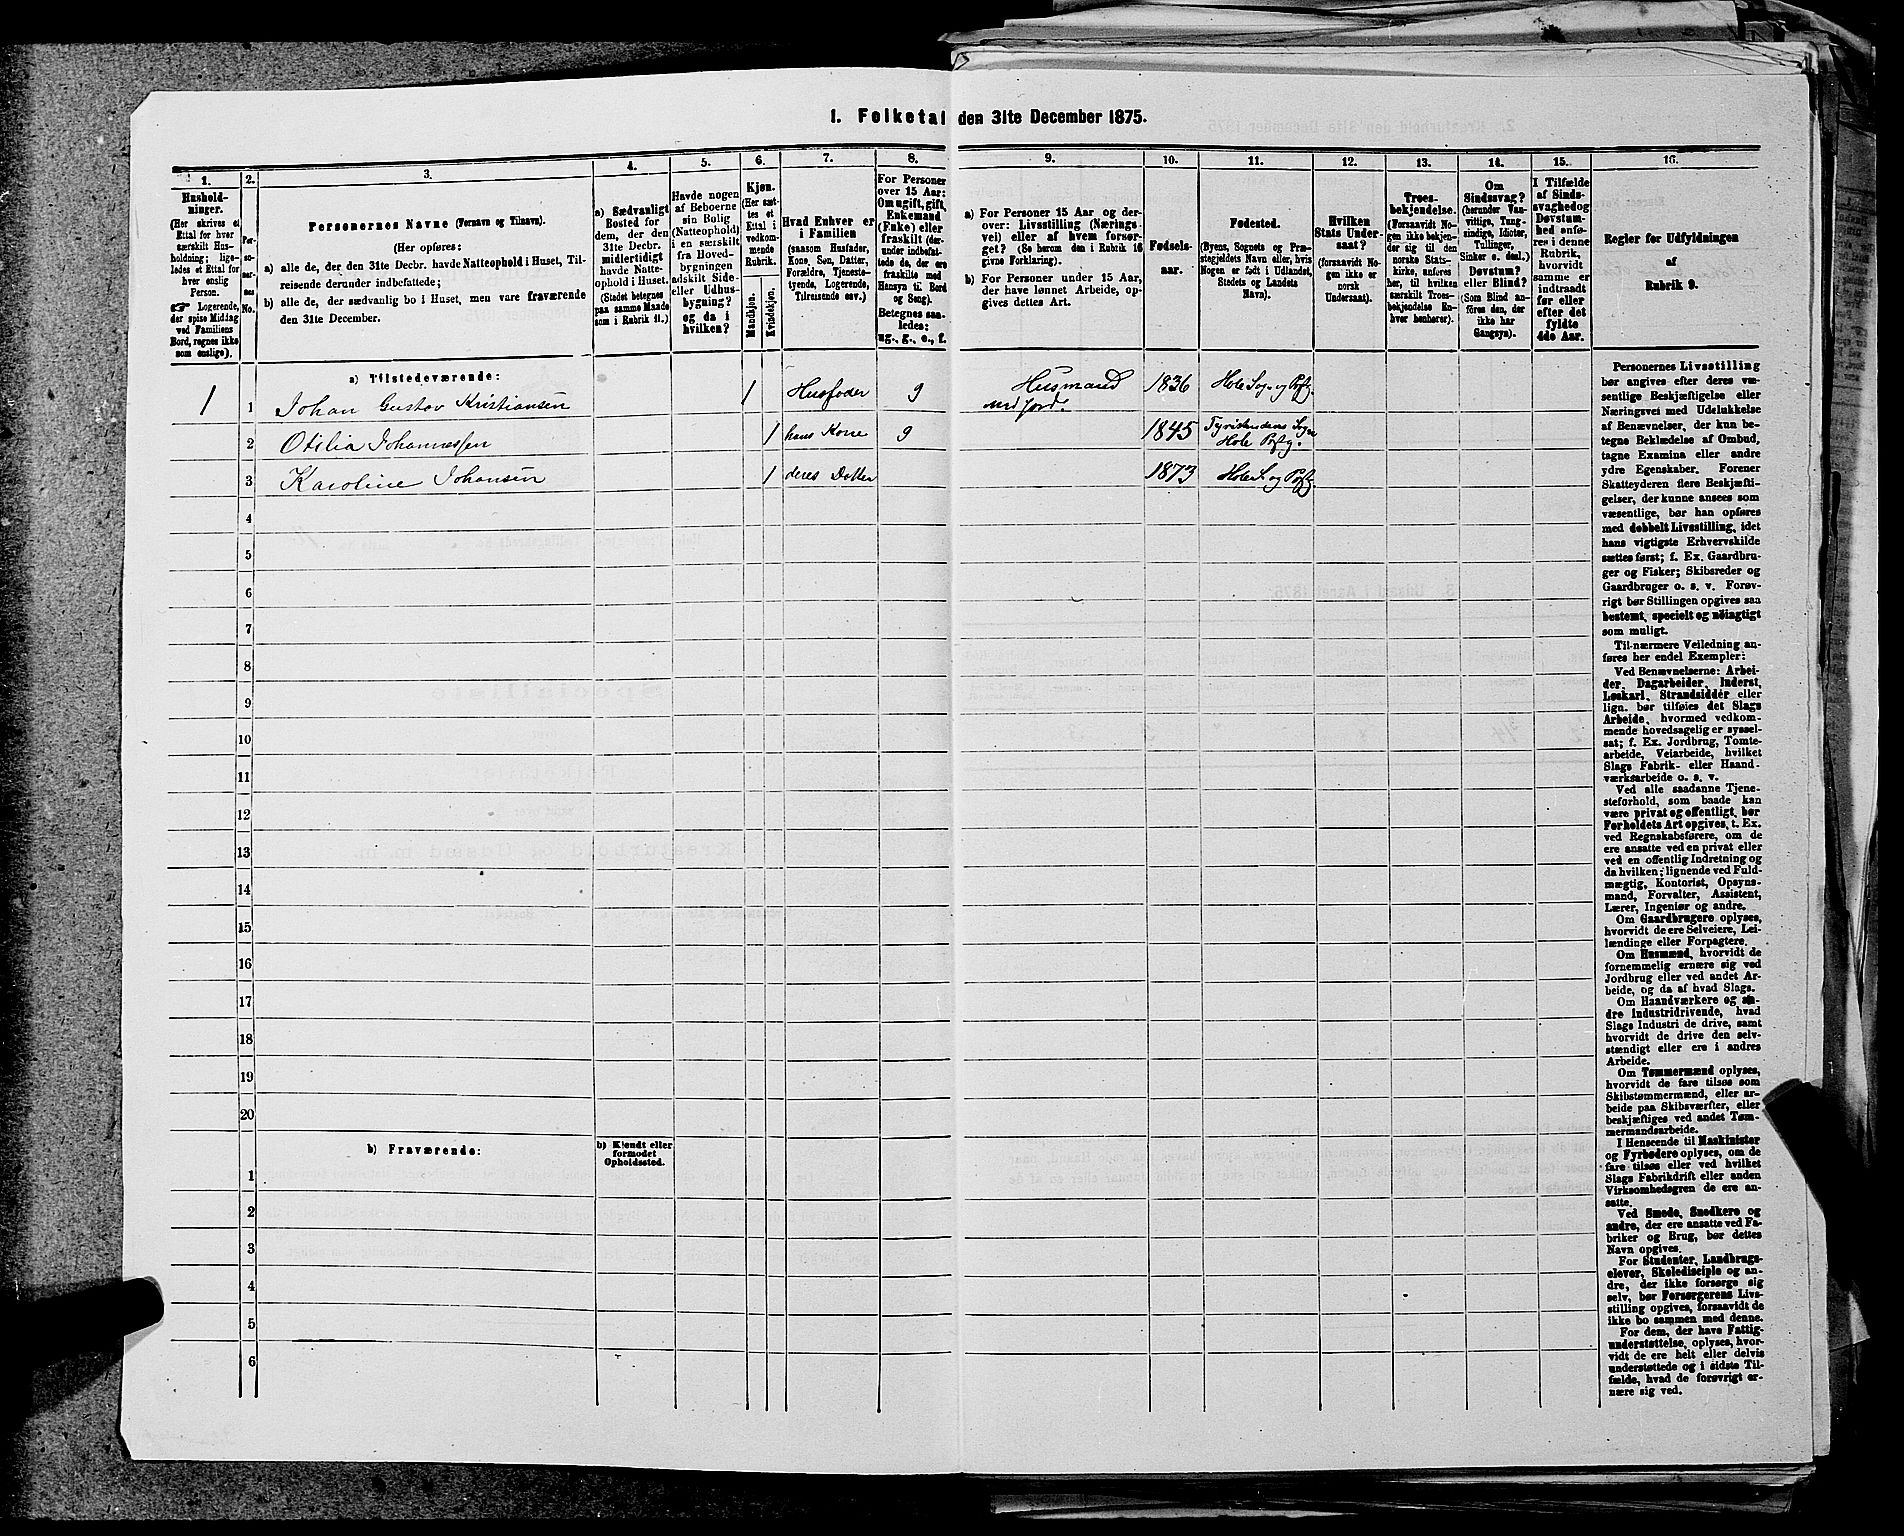 1. Folketal den 31te December 1875.
1.
2.
3.
4.
5.
6.
7.
8.
9.
10.
11.
12.
13.
14.
15.
16.
Hushold-
ninger.
(Her skrives et
Ettal for hver
særskilt Hus-
holdning; lige-
ledes et Ettal for
hver enslig
Person.
Logerende,
der spise Middag
ved Familiens
Bord, regnes ikke
som enslige).
Per-
soner-
nes
No.
Personernes Navne (Fornavn og Tilnavn).
(Her opføres:
a) alle de, der den 31te Decbr. havde Natteophold i Huset, Til-
reisende derunder indbefattede;
b) alle de, der sædvanlig bo i Huset, men vare fraværende
den 31te December.
a) Sædvanligt
Bosted for
dem, der den
31te Decbr.
midlertidigt
havde Natte-
ophold i Huset.
(Stedet betegnes
paa samme Maade
som i Rubrik 11.)
Havde nogen
af Beboerne
sin Bolig
(Natteophold)
i en særskilt
fra Hoved-
bygningen
adskilt Side-
eller Udhus-
bygning?
og da i
hvilken?
Kjøn.
(Her sæt-
tes et
Ettal i
vedkom-
mende
Rubrik.
Mandkjøn.
Kvindekjøn.
Hvad Enhver er
i Familien
(saasom Husfader,
Kone, Søn, Datter,
Forældre, Tjeneste-
tyende, Logerende,
Tilreisende osv.)
For Personer
over 15 Aar:
Om ugift, gift,
Enkemand
(Enke) eller
fraskilt (der-
under indbefat-
tede de, der ere
fraskilte med
Hensyn til Bord
og Seng).
Betegnes saa-
ledes:
ug., g., e., f.
a) For Personer 15 Aar og der-
over: Livsstilling (Nærings-
vei) eller af hvem forsør-
get? (Se herom den i Rubrik 16
givne Forklaring).
b) For Personer under 15 Aar,
der have lønnet Arbeide, op-
gives dettes Art.
Fødsels-
aar.
Fødested.
(Byens, Sognets og Præ-
stegjeldets Navn eller, hvis
Nogen er født i Udlandet,
Stedets og Landets
Navn).
Hvilken
Stats Under-
saat?
(forsaavidt No-
gen ikke er
norsk
Undersaat).
Troes-
bekjendelse.
(Forsaavidt No-
gen ikke bekjen-
der sig til den
norske Stats-
kirke, anføres
her, til hvilken
særskilt Troes-
bekjendelse En-
hver henhører).
Om
Sindssvag?
(herunder Van-
vittige, Tung-
sindige, Idioter,
Tullinger,
Sinker o. desl.)
Døvstum?
eller Blind?
(Som Blind an-
føres den, der
ikke har
Gangsyn).
I Tilfælde
af Sinds-
svaghed og
Døvstum-
hed anfø-
res i denne
Rubrik,
hvorvidt
samme er
indtraadt
før eller
efter det
fyldte
4de Aar.
Regler for Udfyldningen
af
Rubrik 9.
a) Tilstedeværende:
1 1 Johan Gustav Kristiansen 1 Husfader g Husmand med Jord. 1836 Hole Sogn og Præstg.
2 Otilia Johannessen 1 hans Kone g 1845 Tyristrandens Sogn Hole Pstg.
3 Karoline Johansen 1 deres Datter 1873 Hole S. og Pstg.
4
5
6
7
8
9
10
11
12
13
14
15
16
17
18
19
20
b) Fraværende:
b) Kjendt eller
formodet
Opholdssted.
1
2
3
4
5
6
Personernes Livsstilling
bør angives efter deres væ-
sentlige Beskjæftigelse eller
Næringsvei med Udelukkelse
af Benævnelser, der kun be-
tegne Beklædelse af Ombud,
tagne Examina eller andre
ydre Egenskaber. Forener
Skatteyderen flere Beskjæfti-
gelser, der kunne ansees som
væsentlige, bør han opføres
med dobbelt Livsstilling, idet
hans vigtigste Erhvervskilde
sættes først; f. Ex. Gaardbru-
ger og Fisker; Skibsreder og
Gaardbruger o. s. v. Forøv-
rigt bør Stillingen opgives saa
bestemt, specielt og nøiagtigt
som muligt.
Til nærmere Veiledning an-
føres her endel Exempler:
Ved Benævnelserne: Arbei-
der, Dagarbeider, Inderst,
Løskarl, Strandsidder eller
lign. bør tilføies det Slags
Arbeide, hvormed vedkom-
mende hovedsagelig er syssel-
sat; f. Ex. Jordbrug, Tomte-
arbeide, Veiarbeide, hvilket
Slags Fabrik- eller Haand-
værksarbeide o. s. v.
Ved alle saadanne Tjene-
steforhold, som baade kan
være privat og offentligt, bør
Forholdets Art opgives, t. Ex.
ved Regnskabsførere, om de
ere ansatte ved en privat eller
ved en offentlig Indretning og
da hvilken; lignende ved Fuld-
mægtig, Kontorist, Opsyns-
mand, Forvalter, Assistent,
Lærer, Ingeniør og andre.
Om Gaardbrugere oplyses,
hvorvidt de ere Selveiere, Lei-
lændinge eller Forpagtere.
Om Husmænd, hvorvidt de
fornemmelig ernære sig ved
Jordbrug eller ved andet Ar-
beide, og da af hvad Slags.
Om Haandværkere og an-
dre Industridrivende, hvad
Slags Industri de drive, samt
hvorvidt de drive den selv-
stændigt eller ere i andres
Arbeide.
Om Tømmermænd oplyses,
hvorvidt de fare tilsøs som
Skibstømmermænd, eller ar-
beide paa Skibsværfter, eller
beskjæftiges ved andet Tøm-
mermandsarbeide.
I Henseende til Maskinister
og Fyrbødere oplyses, om de
fare tilsøs eller ved hvilket
Slags Fabrikdrift eller anden
Virksomhedsgren de ere an-
satte.
Ved Smede, Snedkere og
andre, der ere ansatte ved Fa-
briker og Brug, bør dettes
Navn opgives.
For Studenter, Landbrugs-
elever, Skoledisciple og an-
dre, der ikke forsørge sig
selv, bør Forsørgerens Livs-
stilling opgives, forsaavidt de
ikke bo sammen med denne.
For dem, der have Fattig-
understøttelse, oplyses, hvor-
vidt de ere helt eller delvis
understøttede og i sidste Til-
fælde, hvad de forøvrigt er-
nære sig ved.